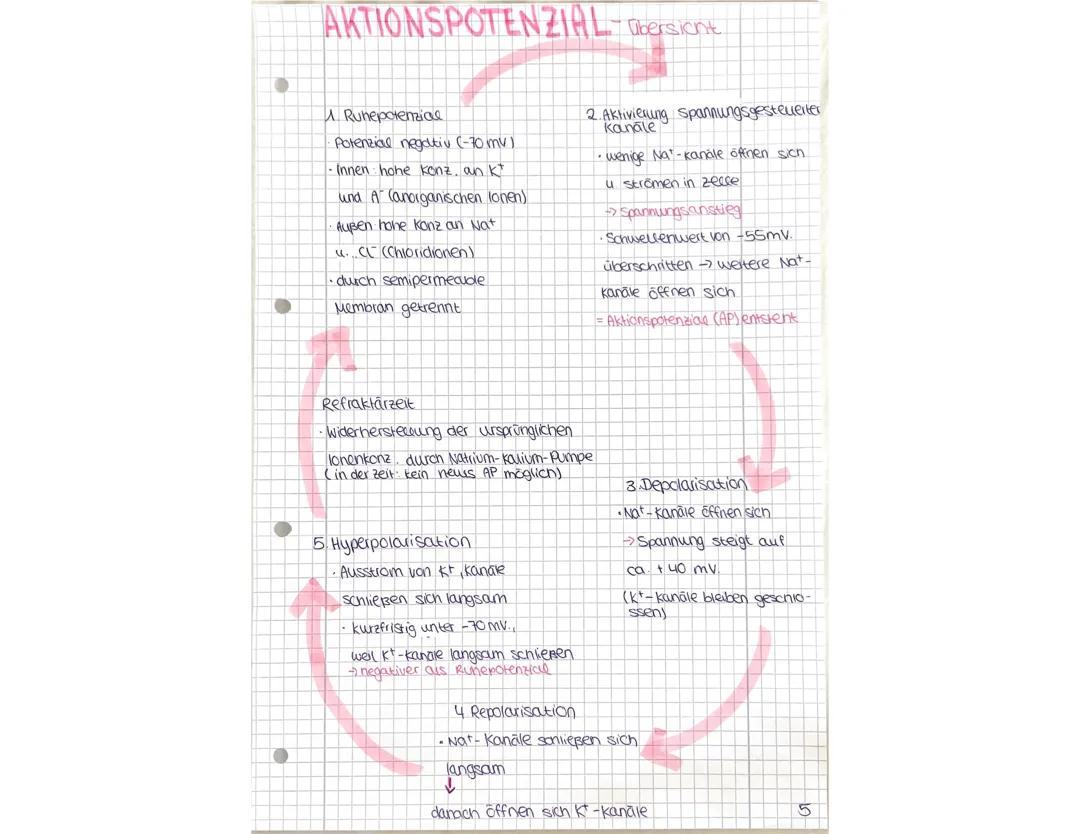 AKTIONSPOTENZIAL - Übersicht
1. Ruhepotenzial
· Potenzial negativ (-70 mV)
· Innen: hohe Konz. an K⁺
und A⁻ (anorganischen Ionen)
· Außen hohe Konz an Na⁺
u. Cl⁻ (Chloridionen)
· durch semipermeable
Membran getrennt
2. Aktivierung spannungsgesteuerter
Kanäle
· wenige Na⁺-Kanäle öffnen sich
u strömen in Zelle
-> Spannungsanstieg
· Schwellenwert von -55mV.
überschritten -> weitere Na⁺-
Kanäle öffnen sich
= Aktionspotenzial (AP) entsteht
3. Depolarisation
· Na⁺-Kanäle öffnen sich
-> Spannung steigt auf
ca. +40 mV.
(K⁺-Kanäle bleiben geschlo-
ssen)
4 Repolarisation
· Na⁺-Kanäle schließen sich
langsam
↓
danach öffnen sich K⁺-Kanäle
5. Hyperpolarisation
· Ausstrom von K⁺, Kanäle
schließen sich langsam
· kurzfristig unter -70 mV.,
weil K⁺-Kanäle langsam schließen
-> negativer als Ruhepotenzial
Refraktärzeit
· Widerherstellung der ursprünglichen
Ionenkonz. durch Natrium-Kalium-Pumpe
(in der Zeit: kein neues AP möglich)
5